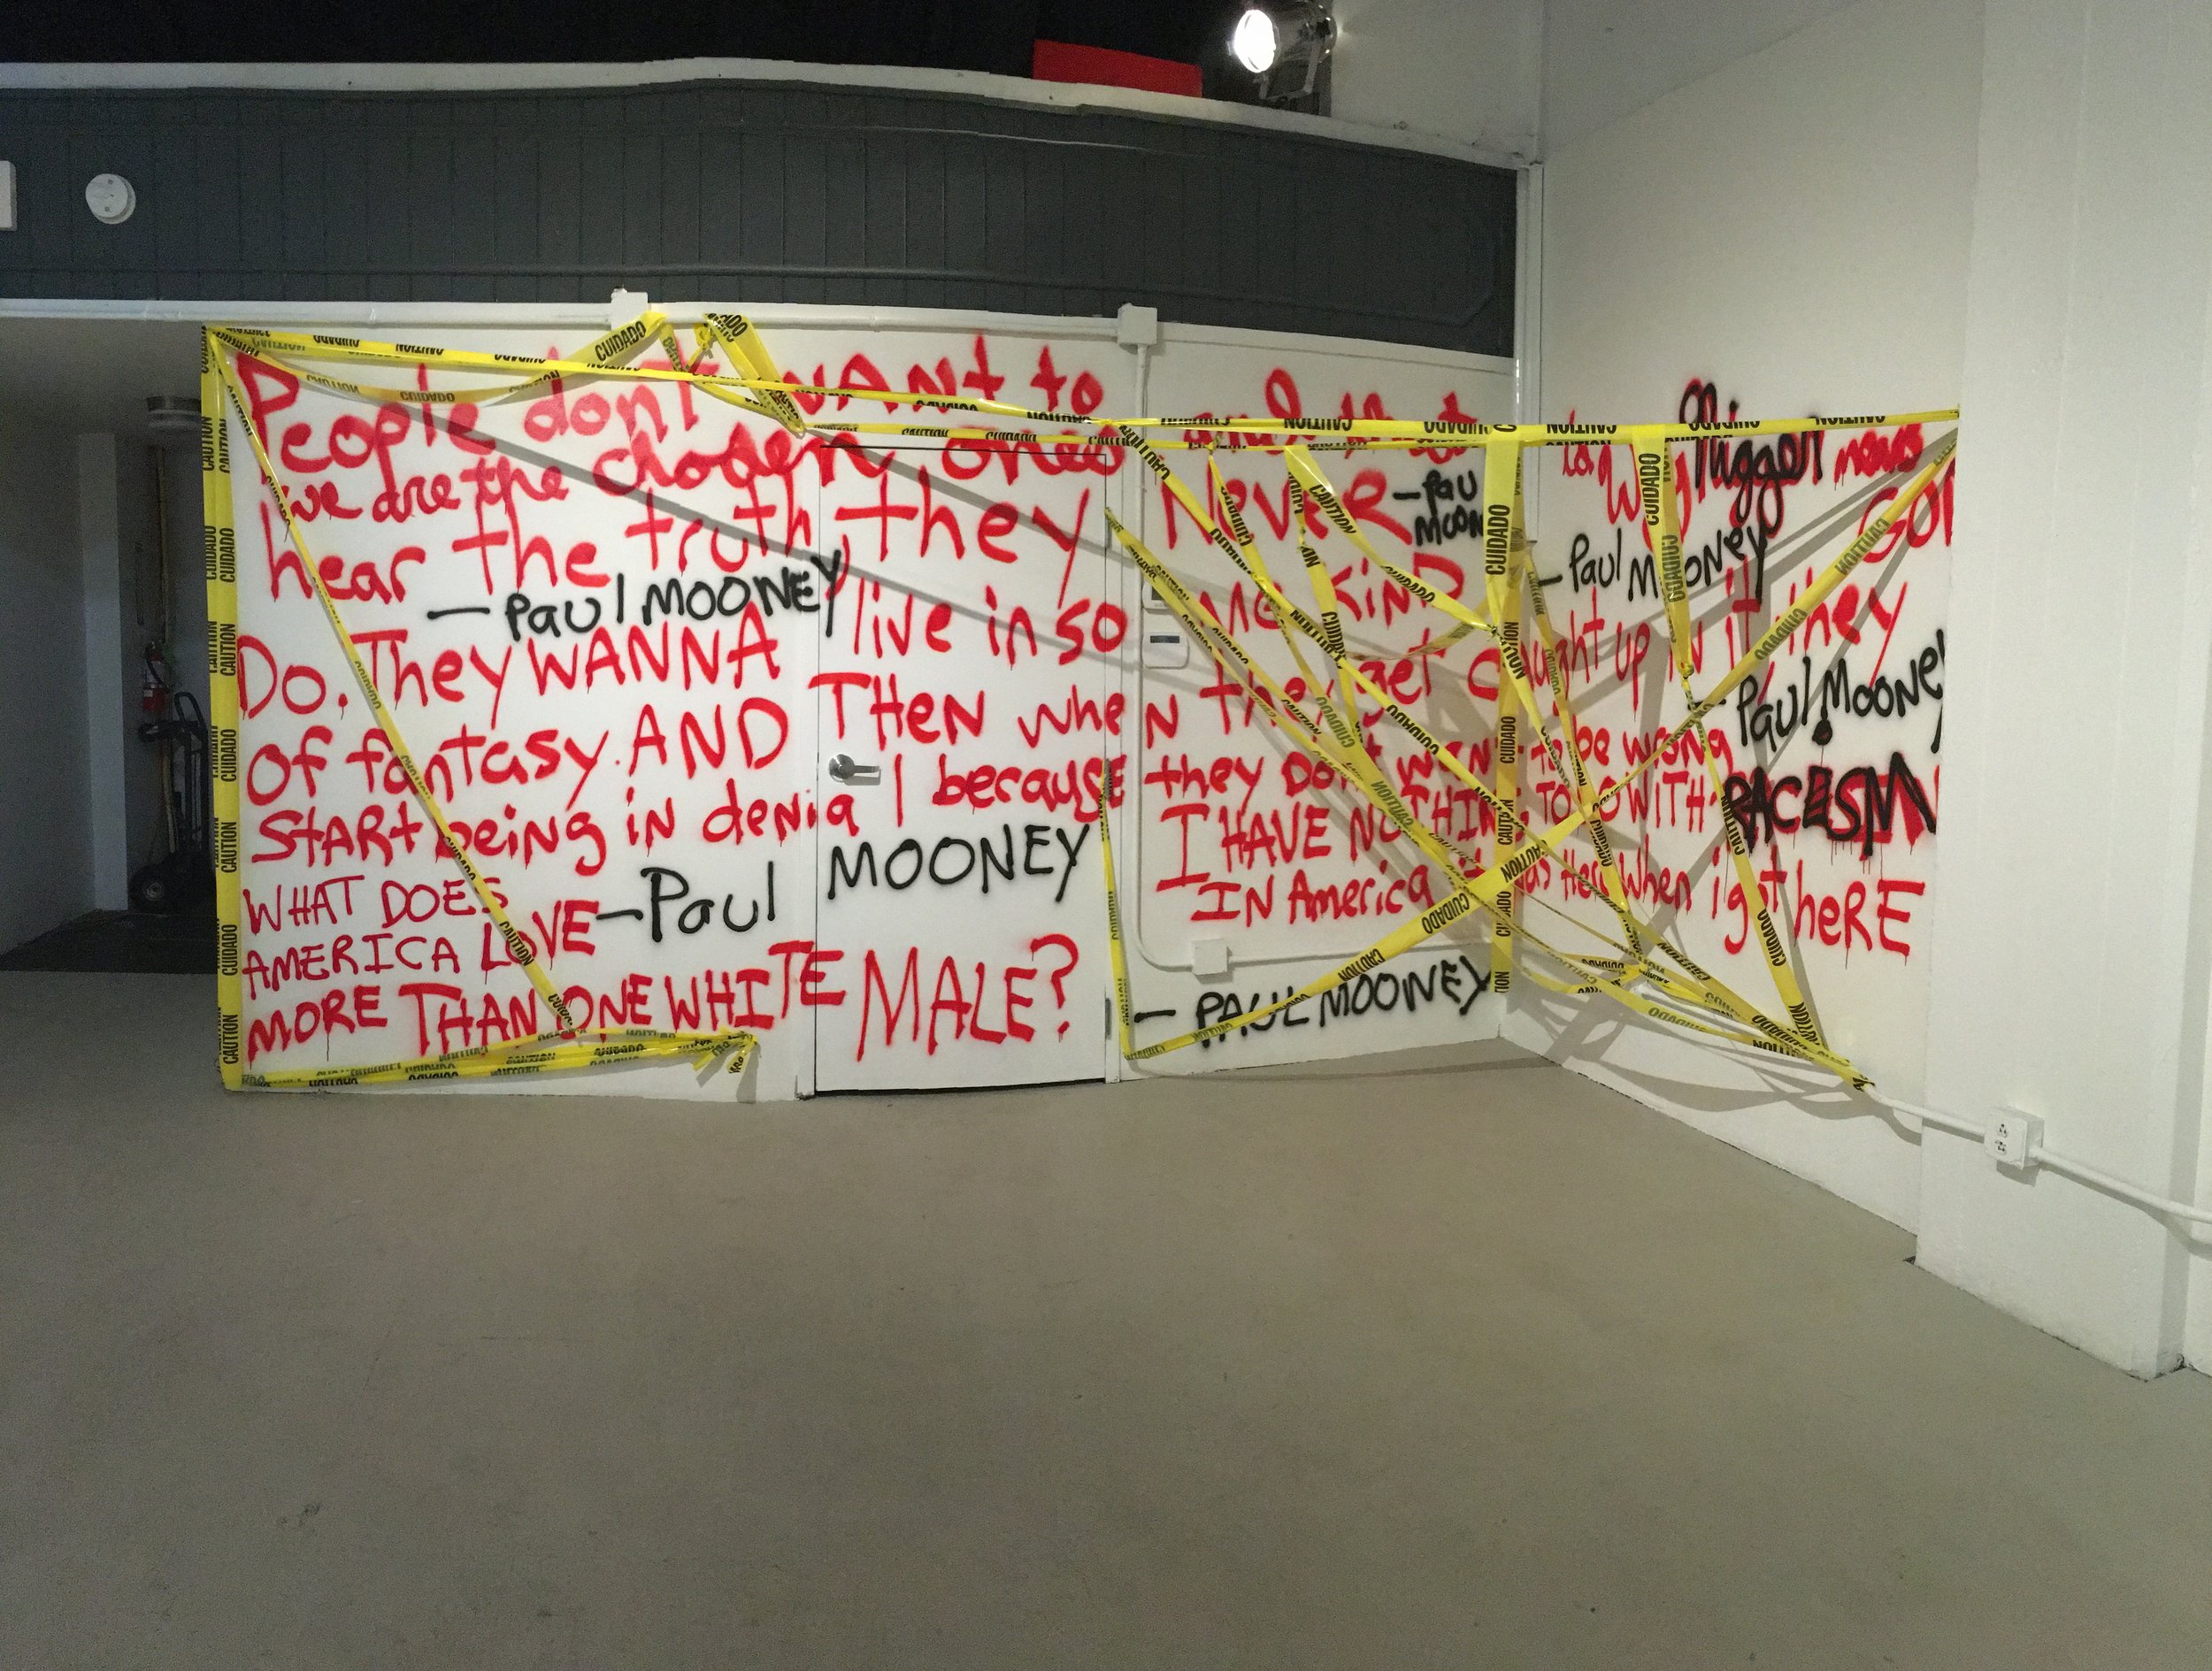 People don't WANT to
we are the chosen ones
hear the truth, they Never
— Paul MOONEY
— Paul
Moon
Nigger means
GOD
— Paul Mooney
Do. They WANNA live in some KIND
of fantasy. AND THEN wheN they get caught up iN it they
— Paul Mooney
START being iN denial because they Don't want to be wrong
WHAT DOES
AMERICA LOVE
MORE THAN ONE WHITE MALE?
— Paul MOONEY
I HAVE NOTHING TO DO WITH RACISM
IN America it was Here when i got heRE
— PAUL MOONEY
CAUTION
CUIDADO